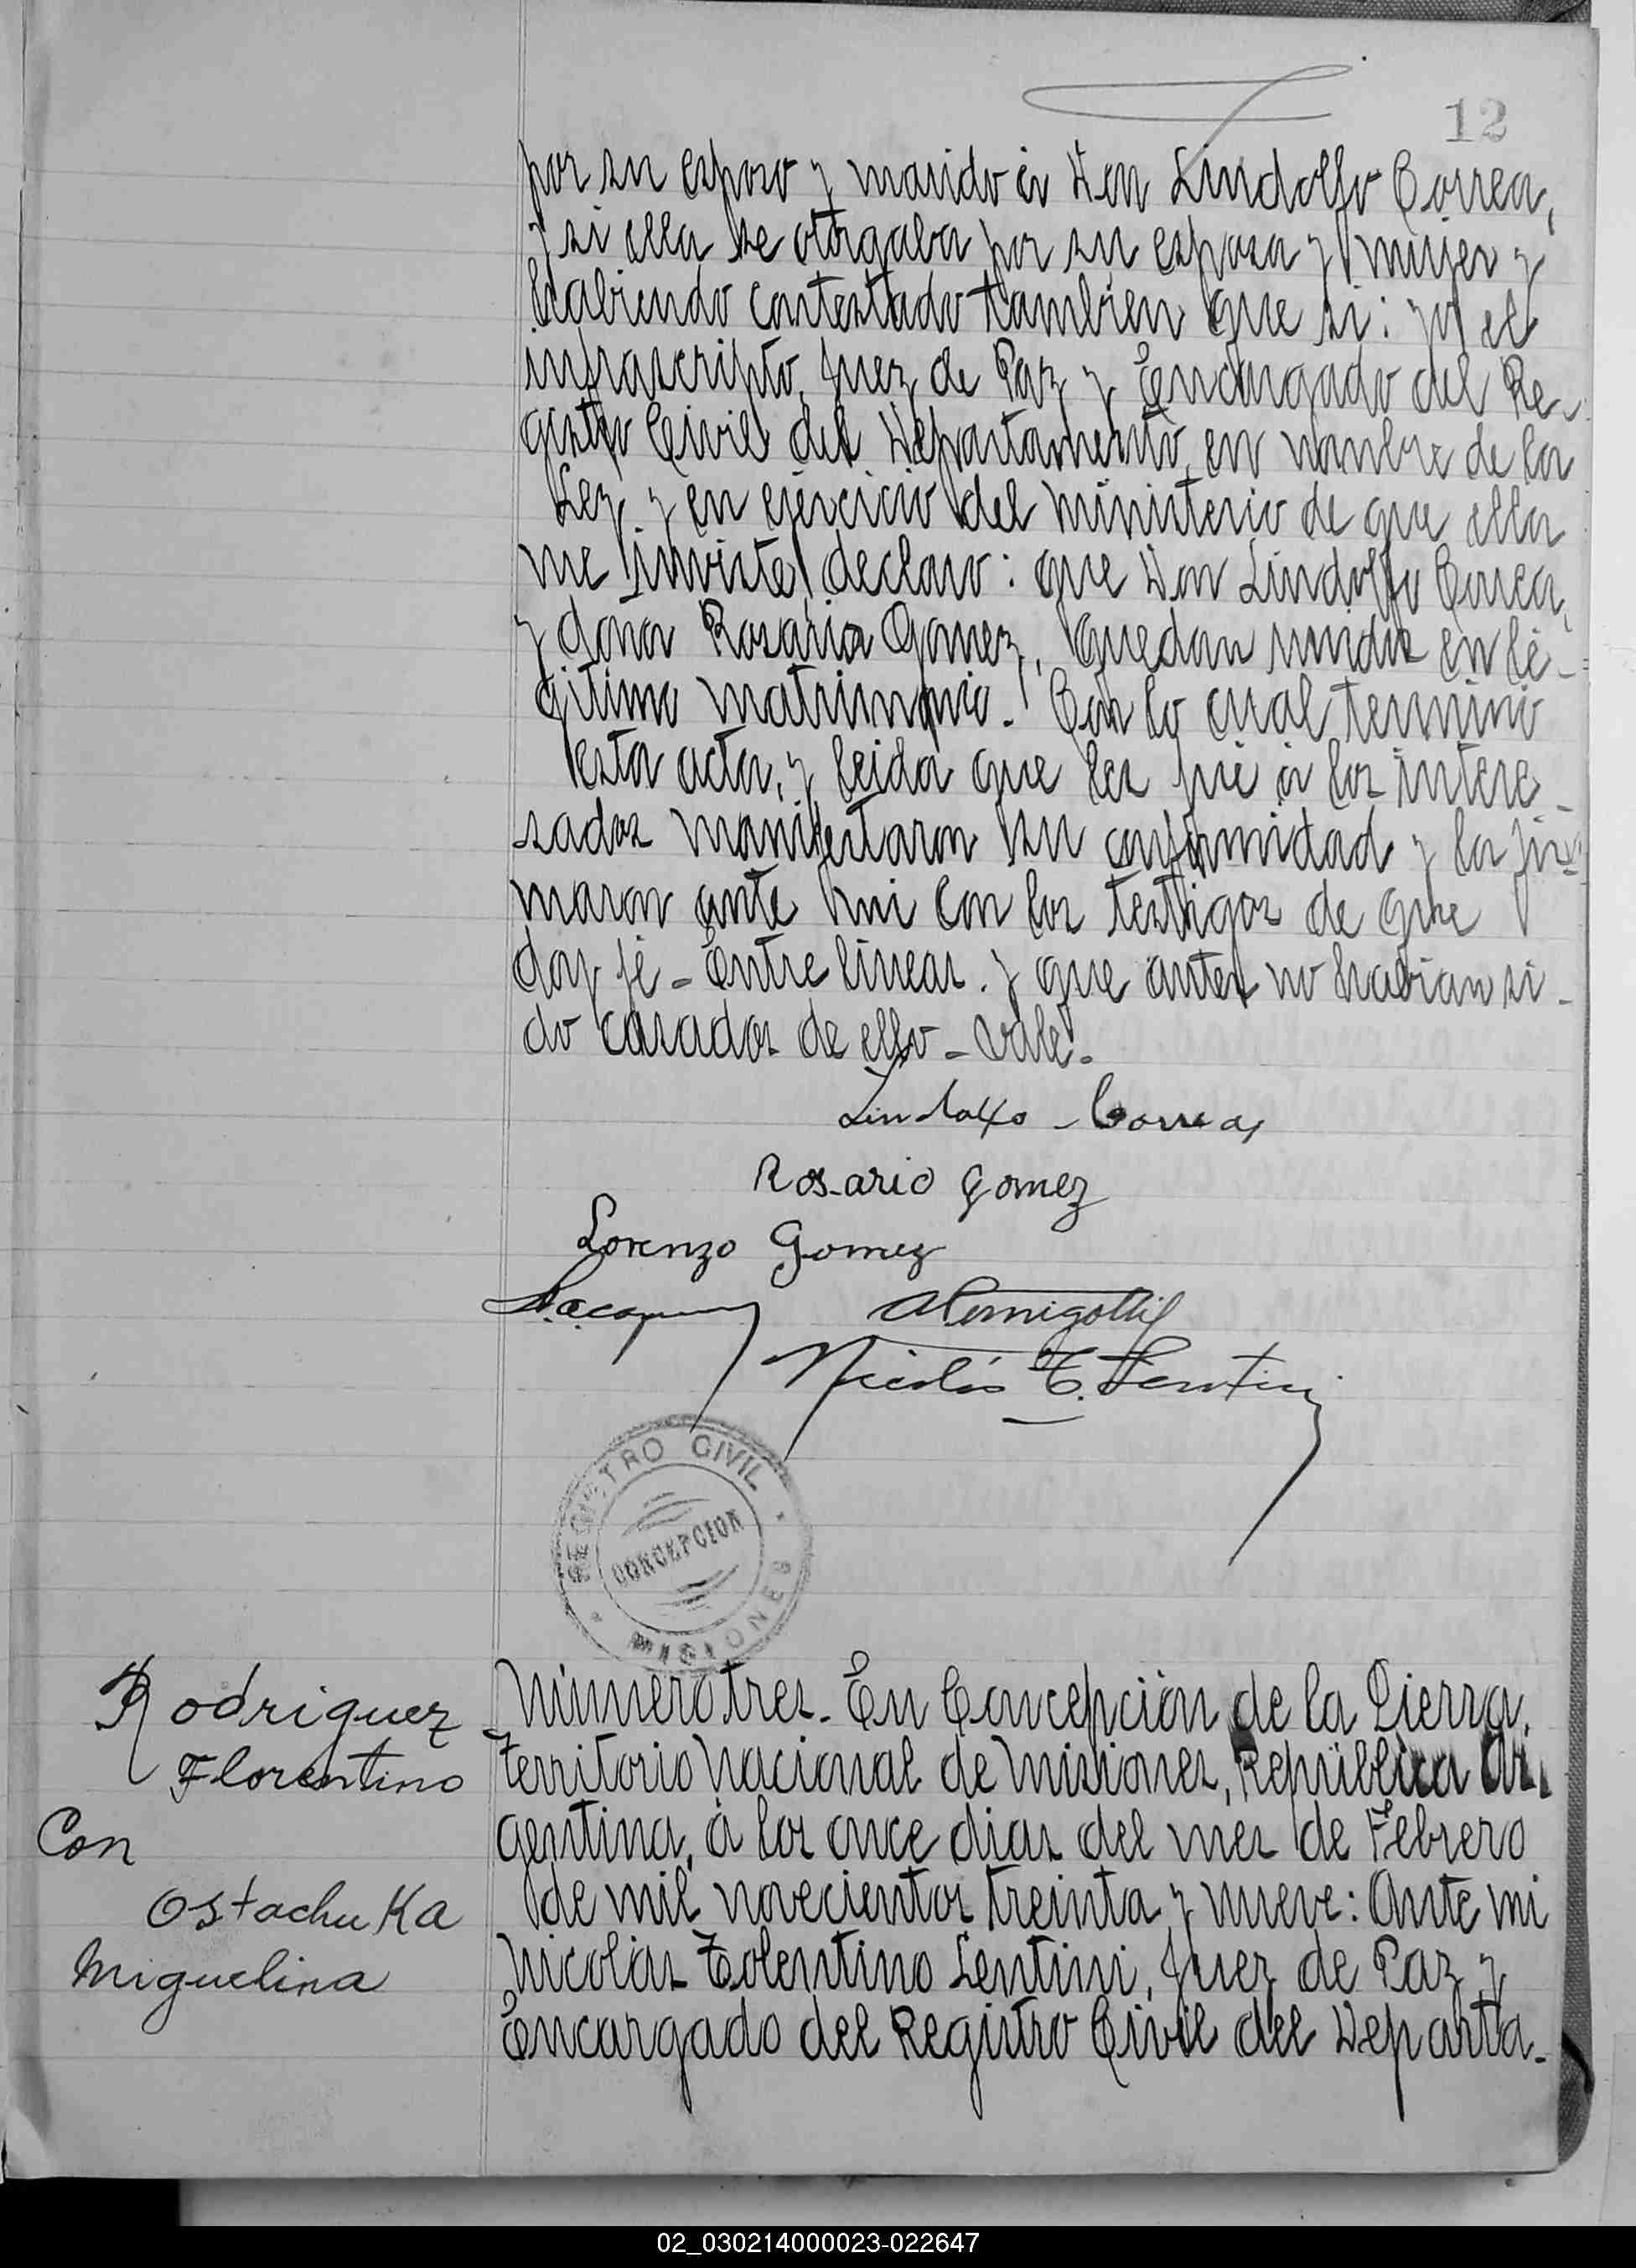 12
por su esposo y marido á Don Lindolfo Correa,
y si ella se otorgaba por su esposa y mujer y
habiendo contestado tambien que si: yo el
infrascripto, Juez de Paz y Encargado del Re-
gistro Civil del Departamento, en nombre de la
Ley y en ejercicio del ministerio de que ella
me inviste, declaro: que Don Lindolfo Correa,
y doña Rosario Gomez, quedan unidos en le-
gitimo matrimonio. Con lo cual terminó
esta acta, y leida que les fué á los intere-
sados manifestaron su conformidad y la fir-
maron ante mi con los testigos de que
doy fé - Entre lineas. y que antes no habian si-
do casados de ello - Vale.
Lindolfo Correa
Rosario Gomez
Lorenzo Gomez
Nicolás T. Lentini
REGISTRO CIVIL
CONCEPCION
MISIONES
Rodriguez
Florentino
Con
Ostachuka
Miguelina
Número tres. En Concepción de la Sierra,
territorio nacional de misiones, República Ar-
gentina, á los once dias del mes de Febrero
de mil novecientos treinta y nueve: Ante mi
Nicolás Tolentino Lentini, Juez de Paz y
Encargado del Registro Civil del Departa-
02_030214000023-022647